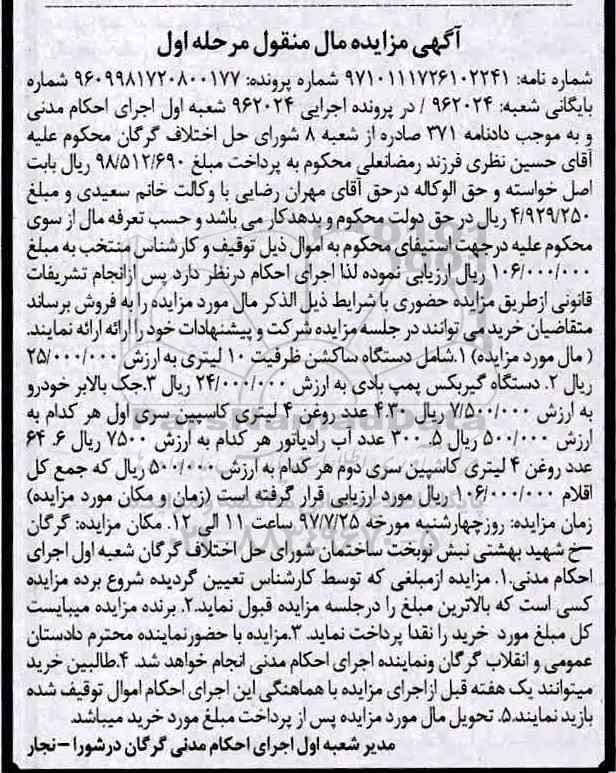 آگهی مزایده مال منقول مرحله اول
شماره نامه: ۹۷۱۰۱۱۱۷۲۶۱۰۲۲۴۱ شماره پرونده: ۹۶۰۹۹۸۱۷۲۰۸۰۰۱۷۷ شماره
بایگانی شعبه: ۹۶۲۰۲۴ / در پرونده اجرایی ۹۶۲۰۲۴ شعبه اول اجرای احکام مدنی
و به موجب دادنامه ۳۷۱ صادره از شعبه ۸ شورای حل اختلاف گرگان محکوم علیه
آقای حسین نظری فرزند رمضانعلی محکوم به پرداخت مبلغ ۹۸/۵۱۲/۶۹۰ ریال بابت
اصل خواسته و حق الوکاله درحق آقای مهران رضایی با وکالت خانم سعیدی و مبلغ
۴/۹۲۹/۲۵۰ ریال در حق دولت محکوم و بدهدکار می باشد و حسب تعرفه مال از سوی
محکوم علیه درجهت استیفای محکوم به اموال ذیل توقیف و کارشناس منتخب به مبلغ
۱۰۶/۰۰۰/۰۰۰ ریال ارزیابی نموده لذا اجرای احکام درنظر دارد پس ازانجام تشریفات
قانونی ازطریق مزایده حضوری با شرایط ذیل الذکر مال مورد مزایده را به فروش برساند
متقاضیان خرید می توانند در جلسه مزایده شرکت و پیشنهادات خود را ارائه ارائه نمایند.
( مال مورد مزایده) ۱.شامل دستگاه ساکشن ظرفیت ۱۰ لیتری به ارزش ۲۵/۰۰۰/۰۰۰
ریال ۲. دستگاه گیربکس پمپ بادی به ارزش ۲۴/۰۰۰/۰۰۰ ریال ۳.جک بالابر خودرو
به ارزش ۷/۵۰۰/۰۰۰ ریال ۴.۳۰ عدد روغن ۴ لیتری کاسپین سری اول هر کدام به
ارزش ۵۰۰/۰۰۰ ریال ۵. ۳۰۰ عدد آب رادیاتور هر کدام به ارزش ۷۵۰۰ ریال ۶. ۶۴
عدد روغن ۴ لیتری کاشپین سری دوم هر کدام به ارزش ۵۰۰/۰۰۰ ریال که جمع کل
اقلام ۱۰۶/۰۰۰/۰۰۰ ریال مورد ارزیابی قرار گرفته است (زمان و مکان مورد مزایده)
زمان مزایده: روزچهارشنبه مورخه ۹۷/۷/۲۵ ساعت ۱۱ الی ۱۲. مکان مزایده: گرگان
–خ شهید بهشتی نبش نوبخت ساختمان شورای حل اختلاف گرگان شعبه اول اجرای
احکام مدنی.۱. مزایده ازمبلغی که توسط کارشناس تعیین گردیده شروع برده مزایده
کسی است که بالاترین مبلغ را درجلسه مزایده قبول نماید.۲. برنده مزایده میبایست
کل مبلغ مورد خرید را نقدا پرداخت نماید. ۳.مزایده با حضورنماینده محترم دادستان
عمومی و انقلاب گرگان ونماینده اجرای احکام مدنی انجام خواهد شد. ۴.طالبین خرید
میتوانند یک هفته قبل ازاجرای مزایده با هماهنگی این اجرای احکام اموال توقیف شده
بازید نمایند.۵. تحویل مال مورد مزایده پس از پرداخت مبلغ مورد خرید میباشد.
مدیر شعبه اول اجرای احکام مدنی گرگان درشورا – نجار
ParsNamadData